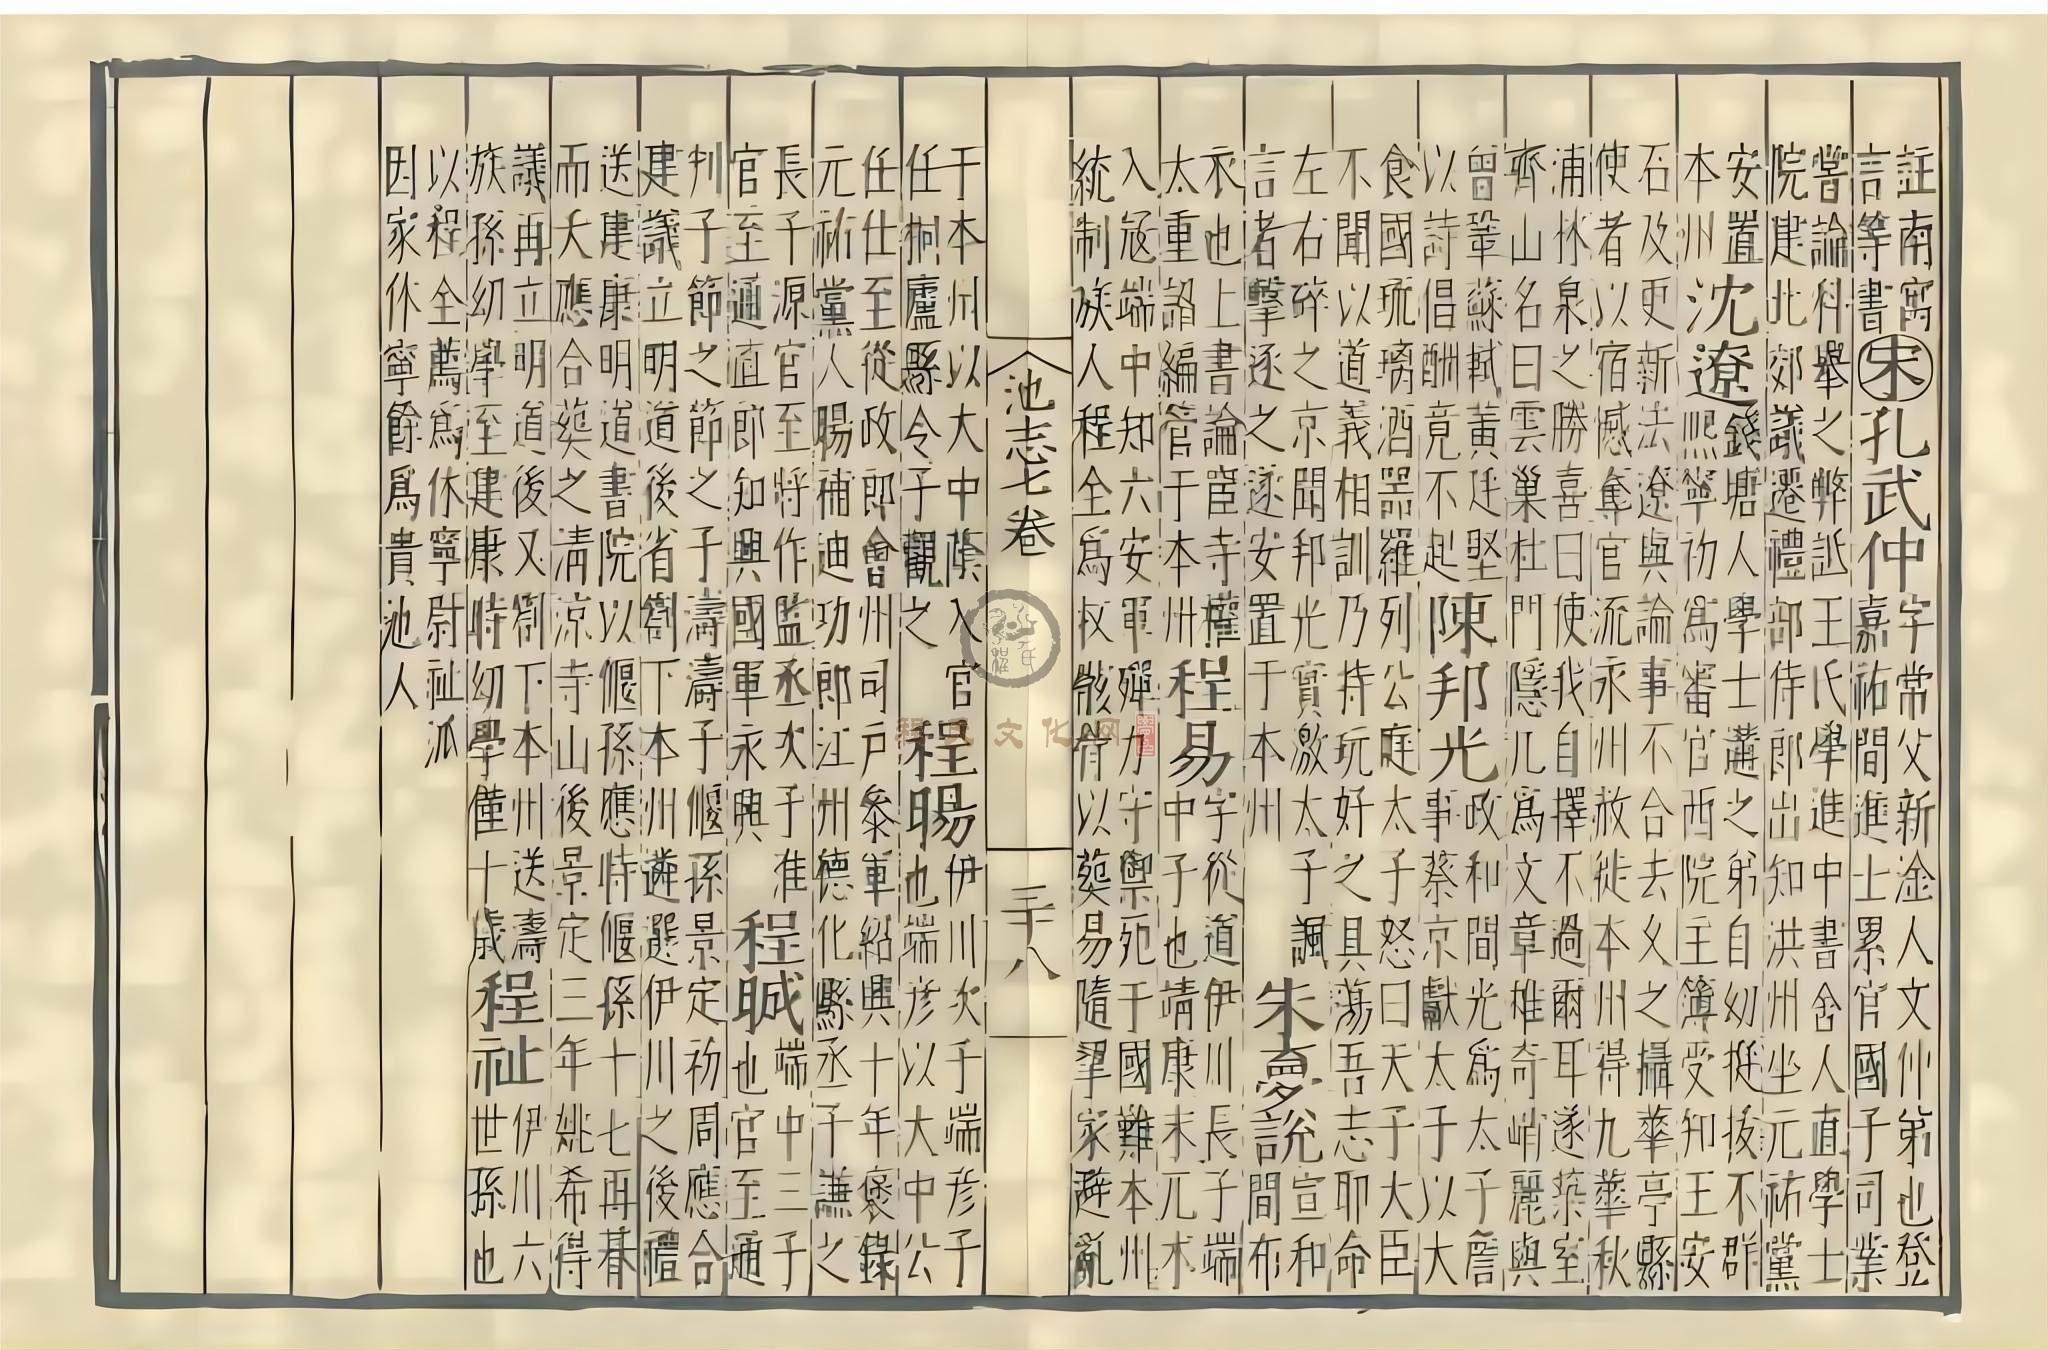 証南窩
言等書
宋孔武仲
字常父新淦人文仲弟也登
嘉祐間進士累官國子司業
嘗論科舉之弊詆王氏學進中書舍人直學士
院建北郊議遷禮部侍郎出知洪州坐元祐黨
安置
本州
沈遼
錢塘人學士遘之弟自幼挺拔不群
熙寧初爲審官西院主簿受知王安
石及更新法遼與論事不合去久之攝華亭縣
使者以宿憾奪官流永州赦徙本州得九華秋
浦林泉之勝喜曰使我自擇不過爾耳遂築室
齊山名曰雲巢杜門隱几爲文章雄奇峭麗與
曾鞏蘇軾黃廷堅
以詩倡酬竟不起
陳邦光
政和間光爲太子詹
事蔡京獻太子以大
食國琉璃酒噐羅列公庭太子怒曰天子大臣
不聞以道義相訓乃持玩好之具蕩吾志耶命
左右碎之京聞邦光實激太子諷
言者擊逐之遂安置于本州
朱夢說
宣和
間布
衣也上書論宦寺權
太重詔編管于本州
程易
字從道伊川長子端
中子也靖康末元术
入寇端中知六安軍殫力守禦死于國難本州
統制族人程全爲权骸骨以葬易隨羣家避亂
池志七卷
二十八
于本州以大中蔭入官
任桐廬縣令子觀之
程暘
伊川次子端彥子
也端彥以大中公
任仕至從政郎會州司戶參軍紹興十年褒錄
元祐黨人暘補迪功郎江州德化縣丞子謙之
長子源官至將作監丞次子淮
官至通直郎知興國軍永興
程晠
端中三子
也官至通
判子節之節之子濤濤子偃孫景定初周應合
建議立明道後省劄下本州遴選伊川之後禮
送建康明道書院以偃孫應特偃孫十七再朞
而夭應合葬之清凉寺山後景定三年姚希得
議再立明道後又劄下本州送壽
族孫幼學至建康時幼學僅十歲
程祉
伊川六
世孫也
以程全薦爲休寧尉祉沠
因家休寧餘爲貴池人
程氏文化网